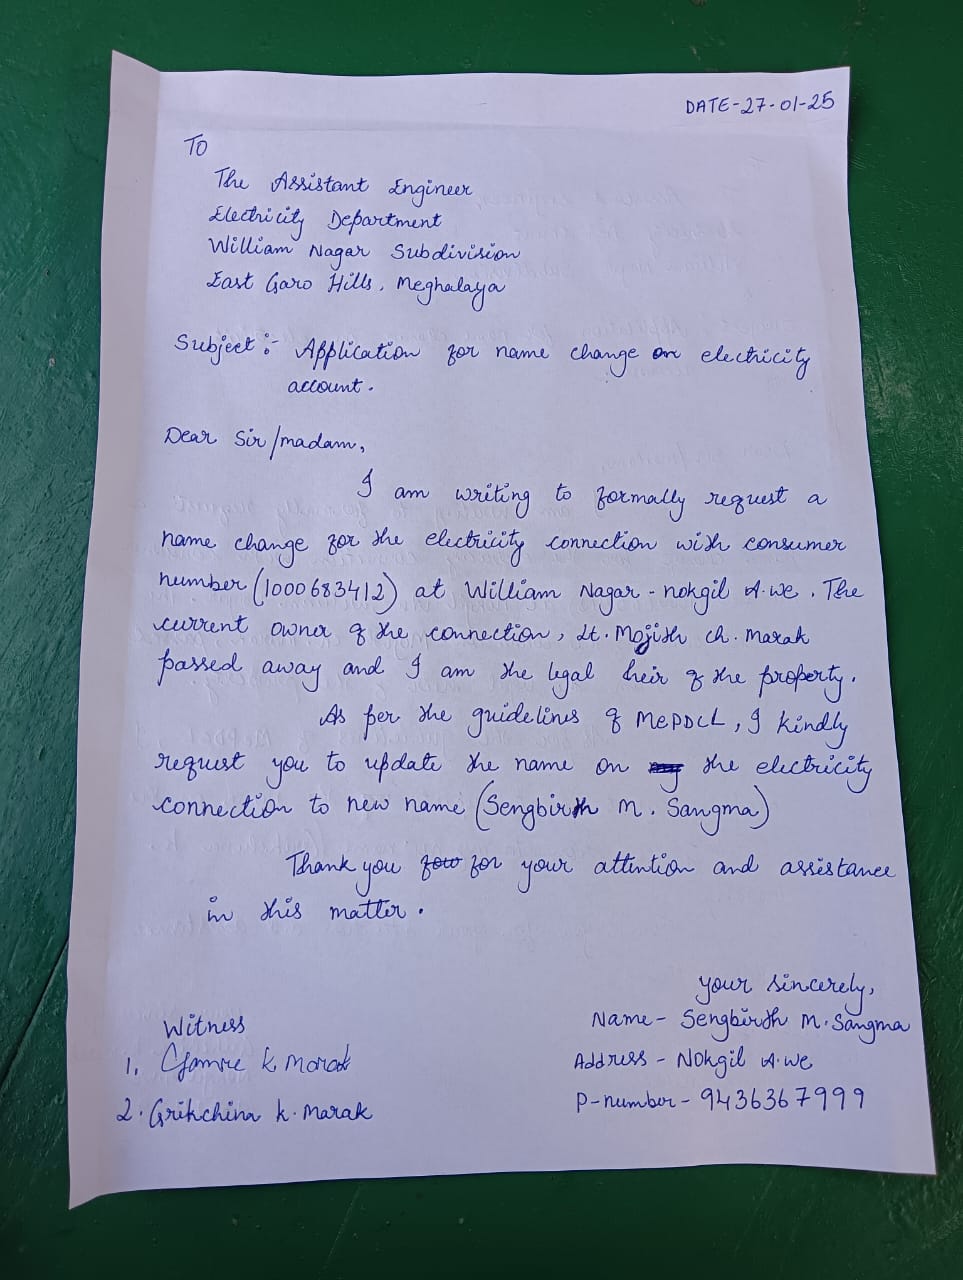 DATE-27-01-25
To
The Assistant Engineer
Electricity Department
William Nagar Subdivision
East Garo Hills, Meghalaya
Subject:- Application for name change on electricity
account.
Dear Sir/madam,
I am writing to formally request a
name change for the electricity connection with consumer
number (1000683412) at William Nagar - nokgil A.we. The
current owner of the connection, Lt. Mojish ch. Marak
passed away and I am the legal heir of the property.
As per the guidelines of MePDCL, I kindly
request you to update the name on the electricity
connection to new name (Sengbirth M. Sangma)
Thank you for your attention and assistance
in this matter.
your sincerely,
Name - Sengbirth M. Sangma
Address - Nokgil A.we
P-number - 9436367999
Witness
1. K. Marak
2. Grikchina K. Marak